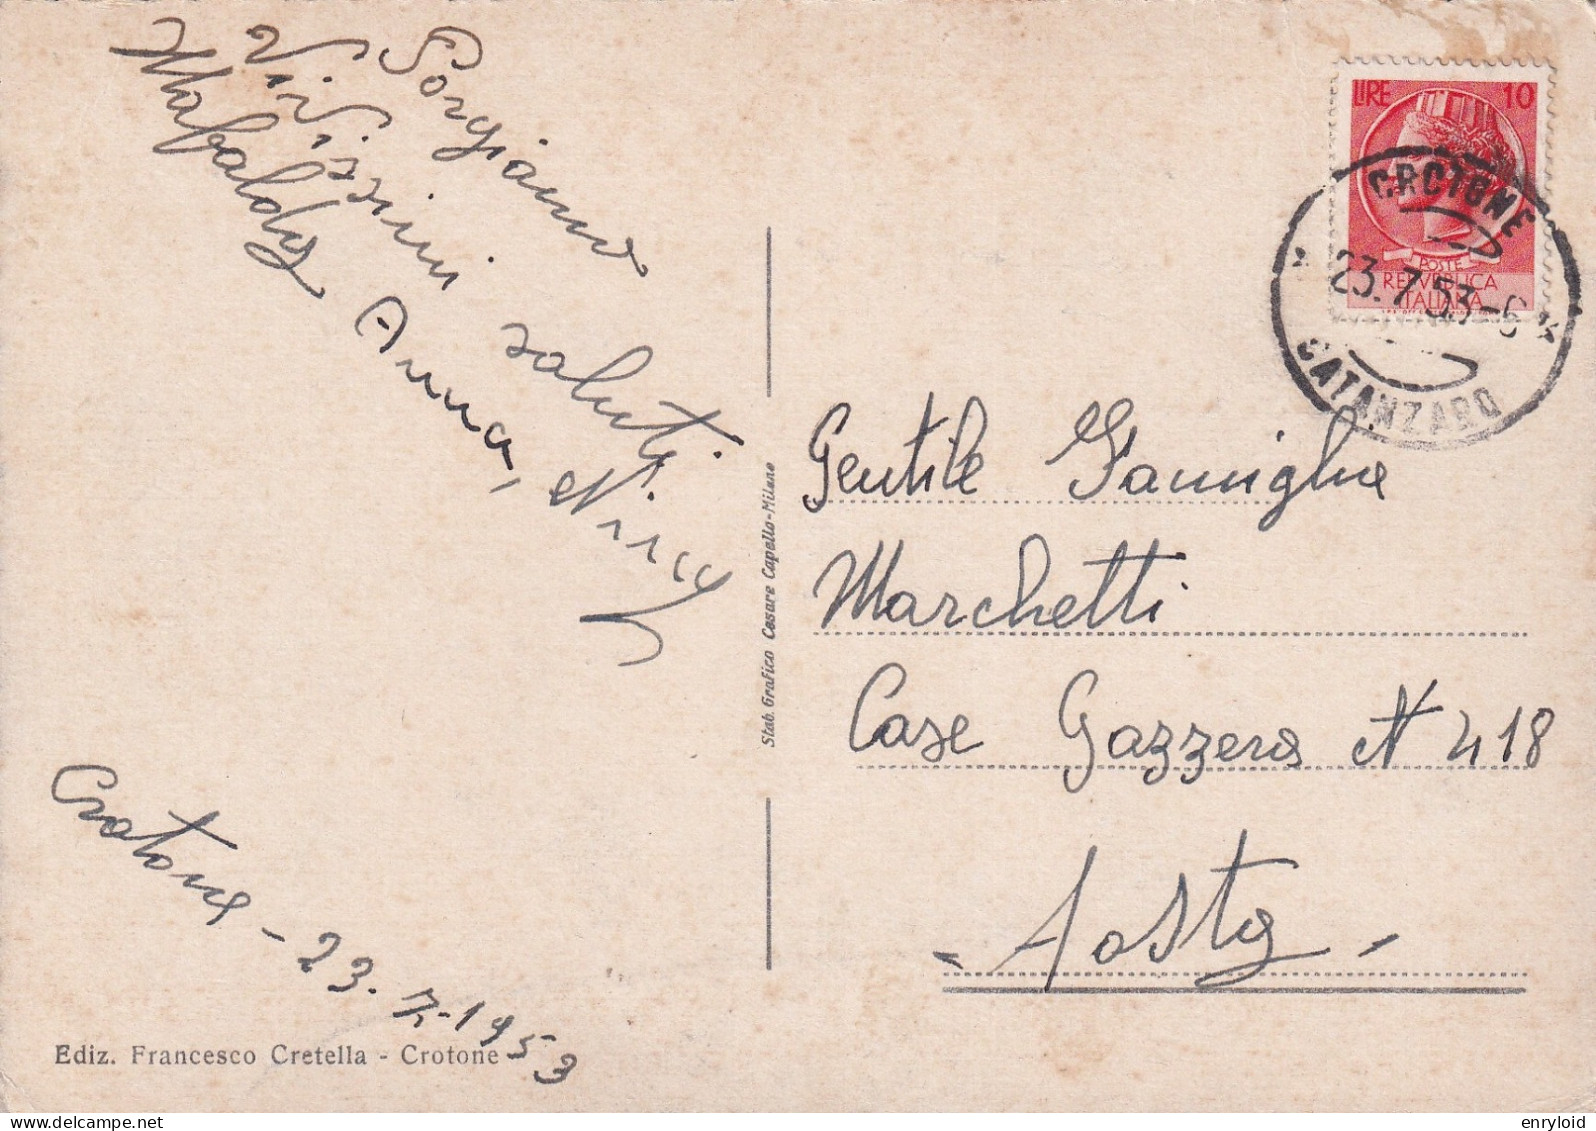 Porgiamo
vivissimi saluti.
Mafalda Anna, Nina
Crotone - 23.7-1953
Ediz. Francesco Cretella - Crotone
Stab. Grafico Cesare Capello-Milano
LIRE 10
POSTE
REPVBBLICA
ITALIANA
CROTONE
23.7.53-6
CATANZARO
Gentile Famiglia
Marchetti
Case Gazzera N 418
- Aosta -
enryloid